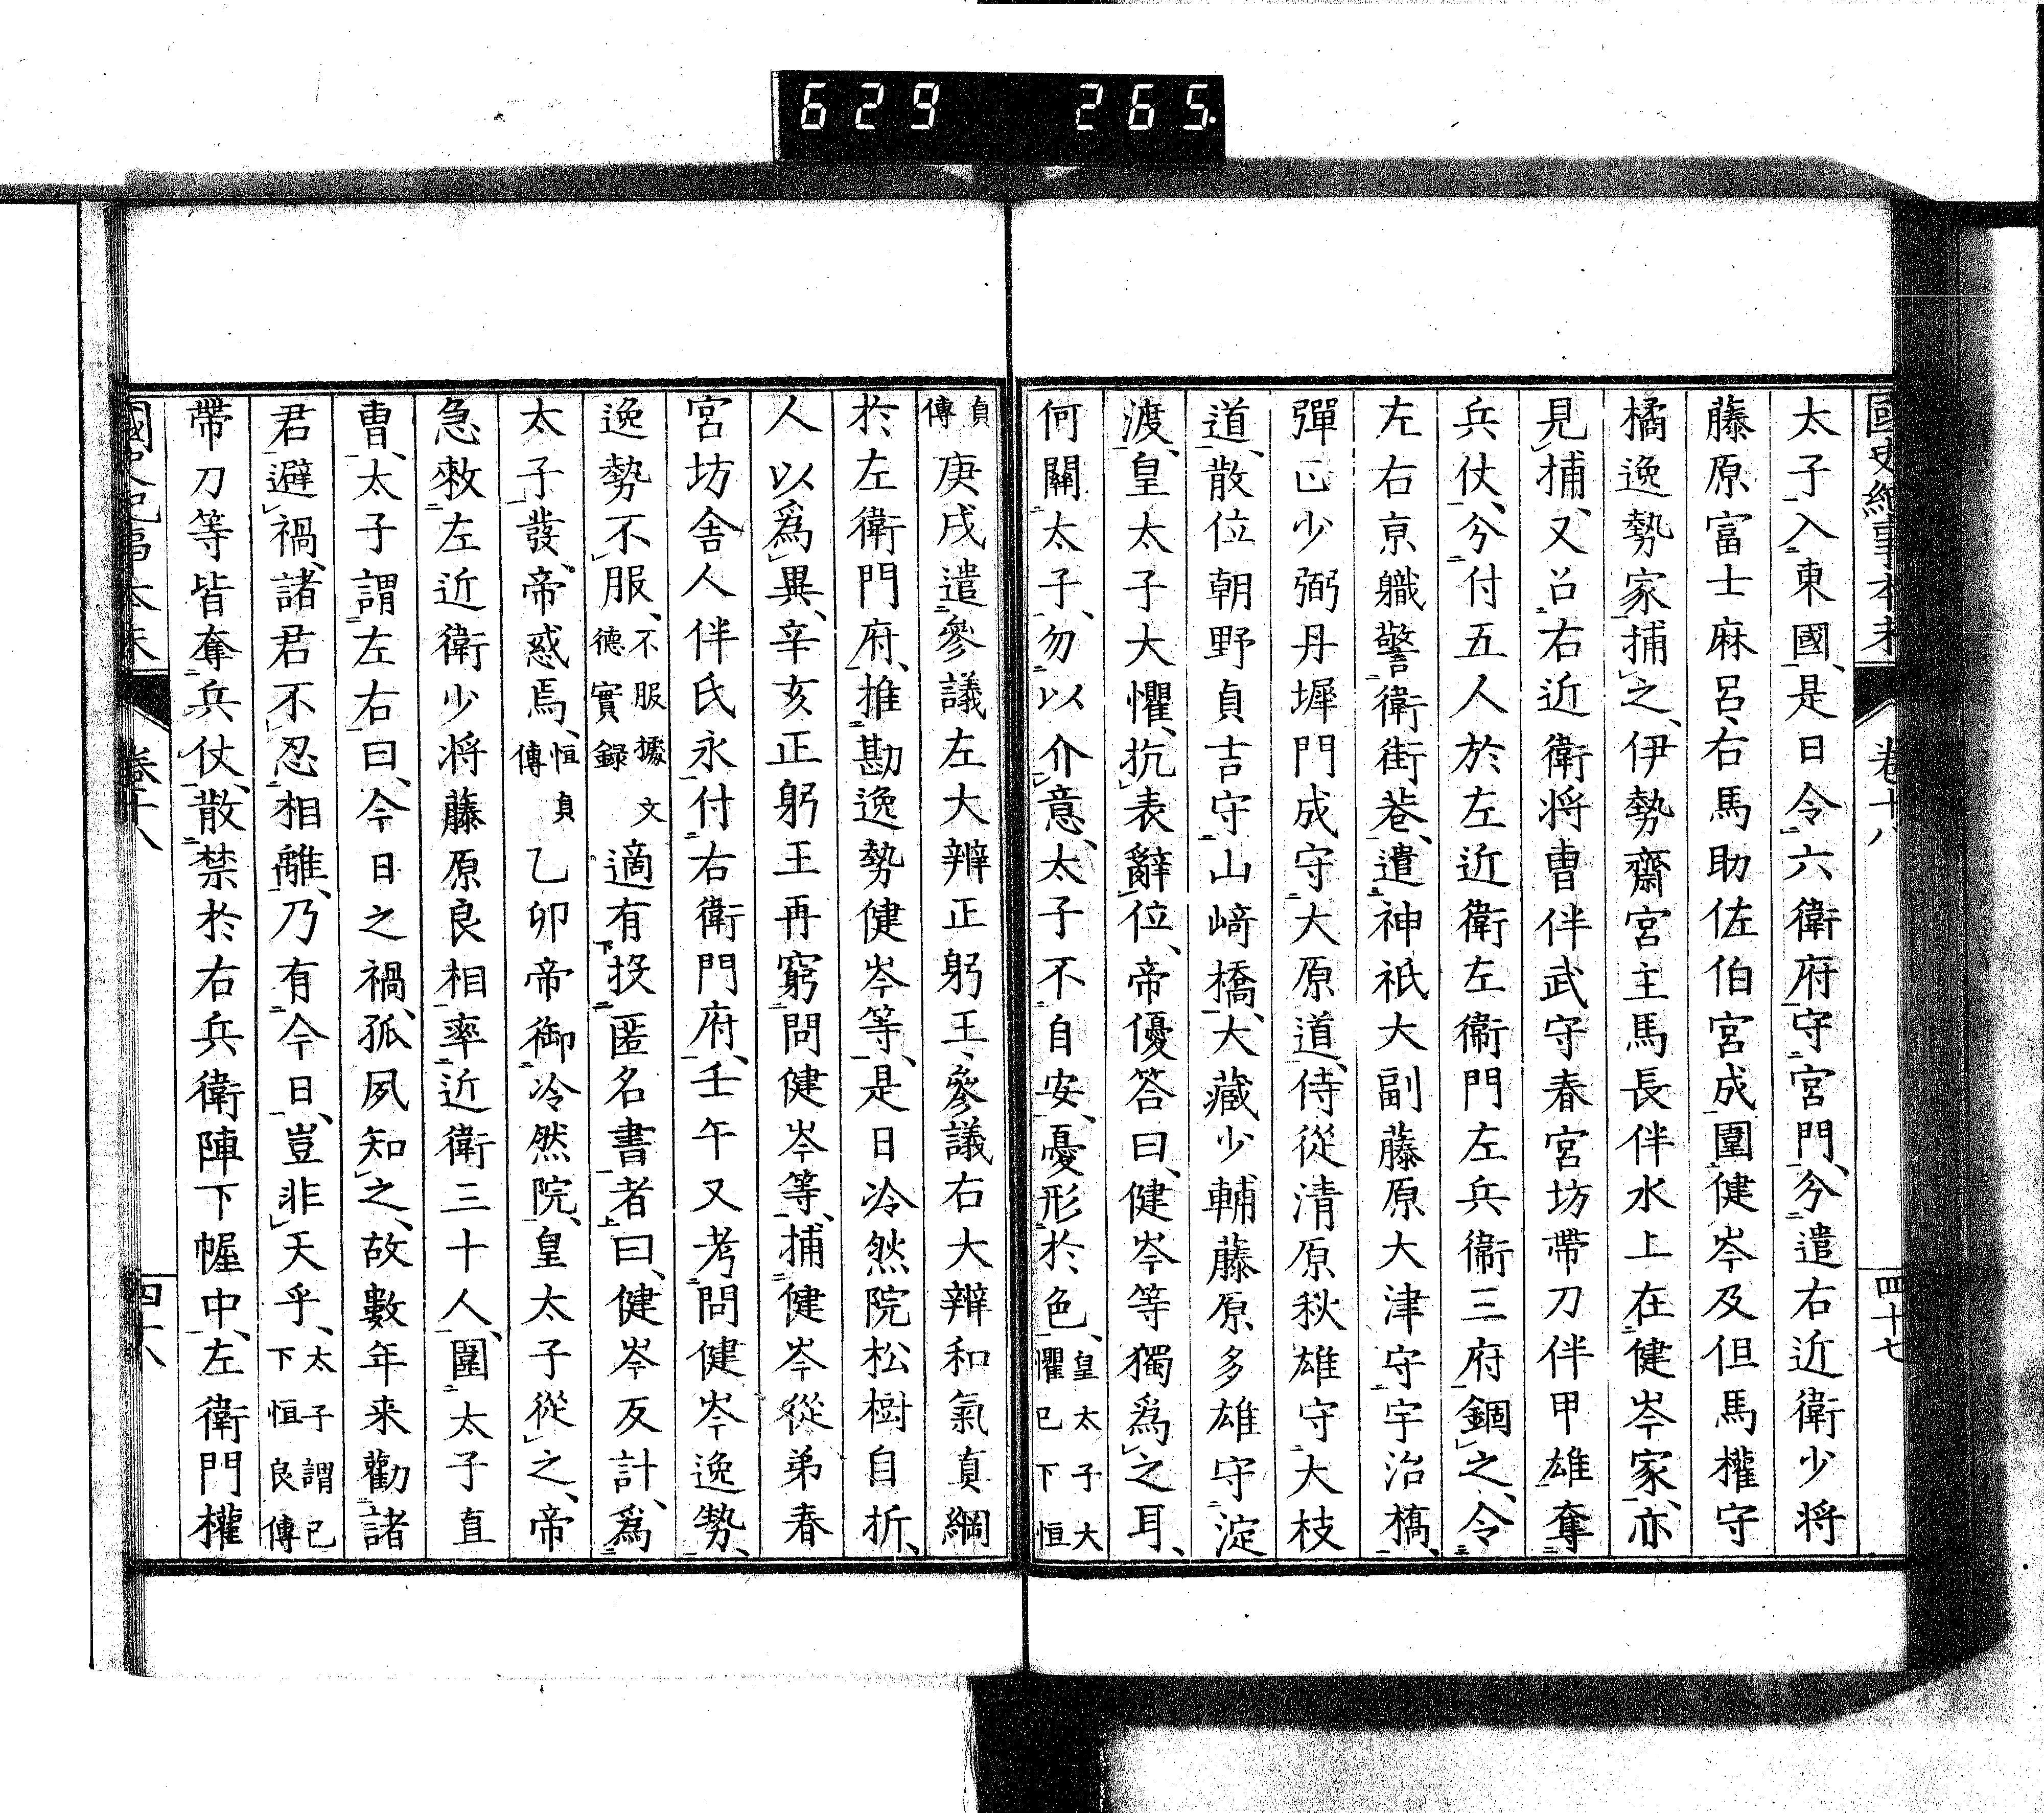 629 265.
國史紀事本末 卷十八 四十七
太子入東國、是日令六衛府守宮門、分遣右近衛少将
藤原富士麻呂、右馬助佐伯宮成圍健岑及但馬權守
橘逸勢家捕之、伊勢齋宮主馬長伴水上在健岑家、亦
見捕、又召右近衛将曹伴武守春宮坊帶刀伴甲雄奪
兵仗、分付五人於左近衛左衞門左兵衞三府錮之、令
左右京職警衛街巷、遣神祇大副藤原大津守宇治橋、
彈正少弼丹墀門成守大原道、侍從清原秋雄守大枝
道、散位朝野貞吉守山﨑橋、大藏少輔藤原多雄守淀
渡、皇太子大懼、抗表辭位、帝優答曰、健岑等獨爲之耳、
何關太子、勿以介意、太子不自安、憂形於色、皇太子大懼已下恒
貞傳庚戌遣參議左大辨正躬王、參議右大辨和氣真綱
於左衛門府、推勘逸勢健岑等、是日冷然院松樹自折、
人以爲異、辛亥正躬王再窮問健岑等、捕健岑從弟春
宮坊舎人伴氏永付右衛門府、壬午又考問健岑逸勢、
逸勢不服、不服據文德實録適有投匿名書者曰、健岑反計、爲
太子發、帝惑焉、恒貞傳乙卯帝御冷然院、皇太子從之、帝
急敕左近衛少将藤原良相率近衛三十人、圍太子直
曹、太子謂左右曰、今日之禍、孤夙知之、故數年来勸諸
君避禍、諸君不忍相離、乃有今日、豈非天乎、太子謂已下恒良傳
帶刀等皆奪兵仗、散禁於右兵衛陣下幄中、左衛門權
國史紀事本末 卷十八 四十八